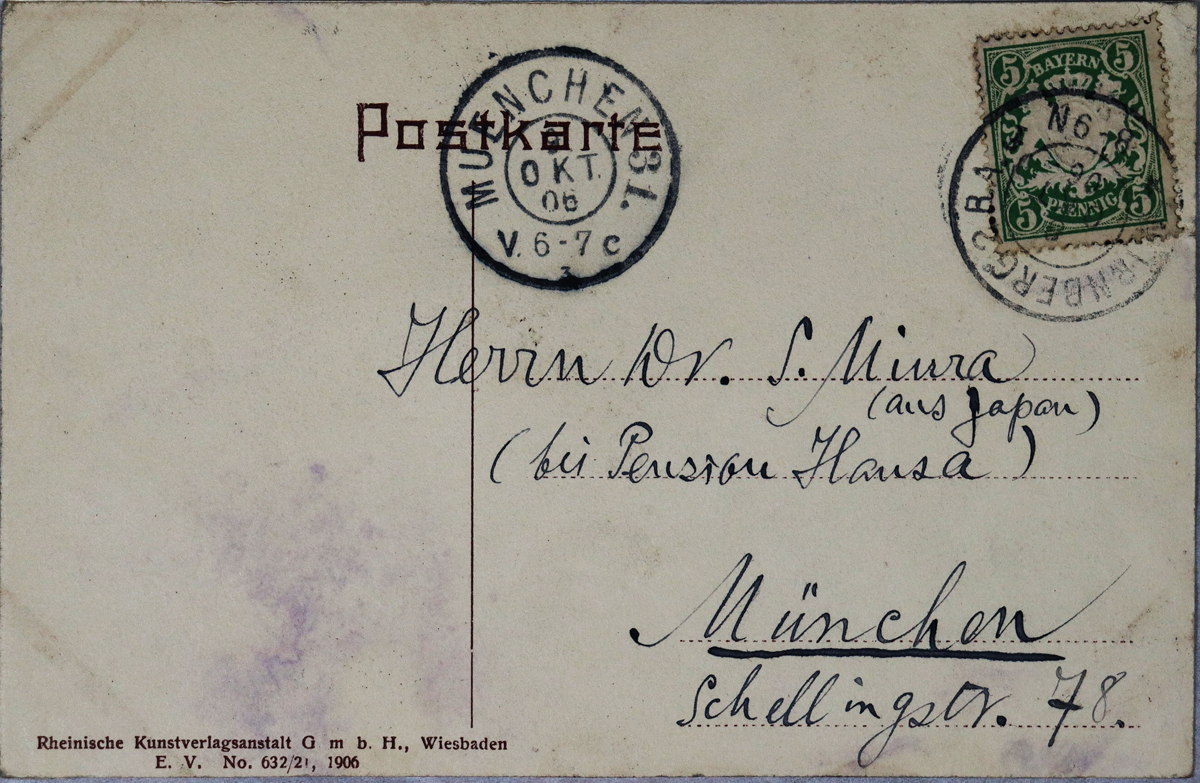 Postkarte
MUENCHEN 31.
OKT.
06
V. 6-7 c
3
5 BAYERN 5
5 PFENNIG 5
NÜRNBERG 2 B.A.
N6
Herrn Dr. S. Miura
(aus Japan)
(bei Pension Hansa)
München
Schellingstr. 78.
Rheinische Kunstverlagsanstalt G m b. H., Wiesbaden
E. V. No. 632/21, 1906